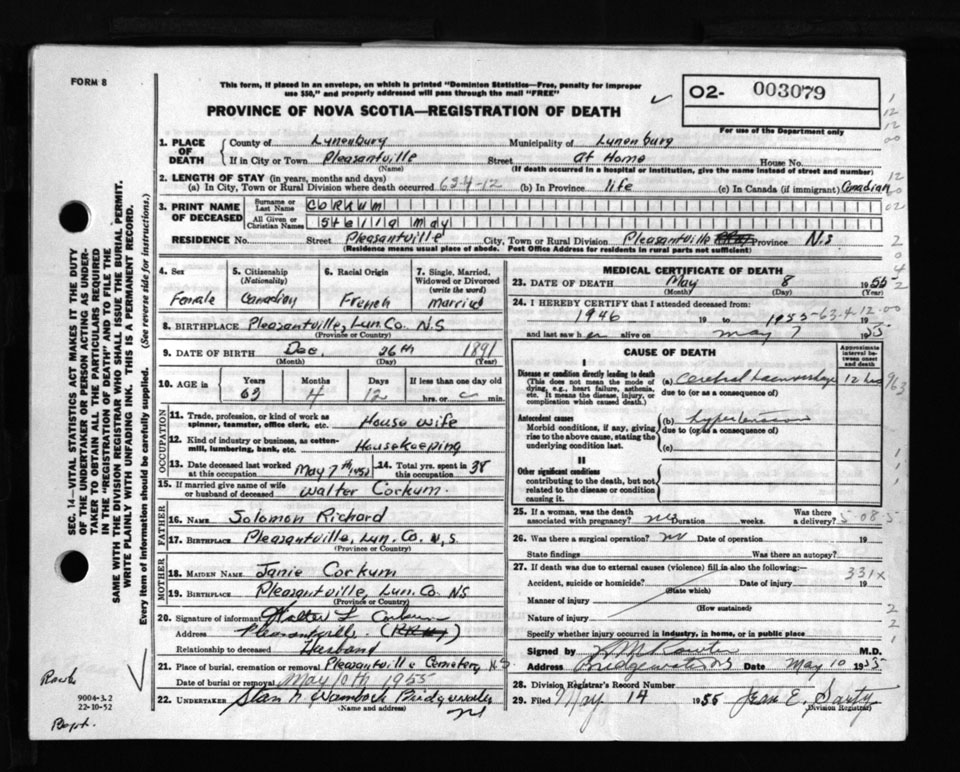 FORM 8
This form, if placed in an envelope, on which is printed "Dominion Statistics—Free, penalty for improper
use $50," and properly addressed will pass through the mail "FREE"
PROVINCE OF NOVA SCOTIA—REGISTRATION OF DEATH
O2- 003079
For use of the Department only
1. PLACE OF DEATH
County of Lunenburg Municipality of Lunenburg
If in City or Town Pleasantville Street At Home House No.
(Name) (If death occurred in a hospital or institution, give the name instead of street and number)
2. LENGTH OF STAY (in years, months and days)
(a) In City, Town or Rural Division where death occurred 63-4-12 (b) In Province life (c) In Canada (if immigrant) Canadian
3. PRINT NAME OF DECEASED
Surname or Last Name CORKUM
All Given or Christian Names May
RESIDENCE No. Street Pleasantville City, Town or Rural Division Pleasantville Province N.S
(Residence means usual place of abode. Post Office Address for residents in rural parts not sufficient)
4. Sex 5. Citizenship 6. Racial Origin 7. Single, Married,
(Nationality) Widowed or Divorced
(write the word)
Female Canadian French Married
8. BIRTHPLACE Pleasantville, Lun. Co. N.S
(Province or Country)
9. DATE OF BIRTH Dec. 26th 1891
(Month) (Day) (Year)
10. AGE in Years Months Days If less than one day old
63 4 12 hrs. or min.
OCCUPATION
11. Trade, profession, or kind of work as
spinner, teamster, office clerk, etc. House wife
12. Kind of industry or business, as cotton-
mill, lumbering, bank, etc. Housekeeping
13. Date deceased last worked at this occupation May 7th 14. Total yrs. spent in this occupation 38
15. If married give name of wife
or husband of deceased Walter Corkum.
FATHER
16. NAME Solomon Richard
17. BIRTHPLACE Pleasantville, Lun. Co. N.S
(Province or Country)
MOTHER
18. MAIDEN NAME Janie Corkum
19. BIRTHPLACE Pleasantville, Lun. Co. NS
(Province or Country)
20. Signature of informant Walter L Corkum
Address Pleasantville.
Relationship to deceased Husband
21. Place of burial, cremation or removal Pleasantville Cemetery, N.S
Date of burial or removal May 10th 1955
22. UNDERTAKER Bridgewater
(Name and address) NS
MEDICAL CERTIFICATE OF DEATH
23. DATE OF DEATH May 8 1955
(Month) (Day) (Year)
24. I HEREBY CERTIFY that I attended deceased from:
1946 19 to 1955
and last saw her alive on May 7 1955
63-4-12-00
CAUSE OF DEATH
Approximate interval between onset and death
I
Disease or condition directly leading to death
(This does not mean the mode of
dying, e.g., heart failure, asthenia,
etc. It means the disease, injury, or
complication which caused death.)
(a) Cerebral haemorrhage 12 hrs
due to (or as a consequence of)
Antecedent causes
Morbid conditions, if any, giving
rise to the above cause, stating the
underlying condition last.
(b) hypertension
due to (or as a consequence of)
(c)
II
Other significant conditions
contributing to the death, but not
related to the disease or condition
causing it.
25. If a woman, was the death associated with pregnancy? no Duration weeks. Was there a delivery?
26. Was there a surgical operation? no Date of operation 19
State findings Was there an autopsy?
27. If death was due to external causes (violence) fill in also the following:—
331x
Accident, suicide or homicide? Date of injury 19
(State which)
Manner of injury
(How sustained)
Nature of injury
Specify whether injury occurred in industry, in home, or in public place
Signed M.D.
Address Bridgewater NS Date May 10 1955
28. Division Registrar's Record Number
29. Filed May 14 1955 Jean E. Sarty
(Division Registrar)
SEC. 14—VITAL STATISTICS ACT MAKES IT THE DUTY
OF THE UNDERTAKER OR PERSON ACTING AS UNDER-
TAKER TO OBTAIN ALL THE PARTICULARS REQUIRED
IN THE "REGISTRATION OF DEATH" AND TO FILE THE
SAME WITH THE DIVISION REGISTRAR WHO SHALL ISSUE THE BURIAL PERMIT.
WRITE PLAINLY WITH UNFADING INK. THIS IS A PERMANENT RECORD.
Every item of information should be carefully supplied. (See reverse side for instructions.)
9004-3.2
22-10-52
Bapt.